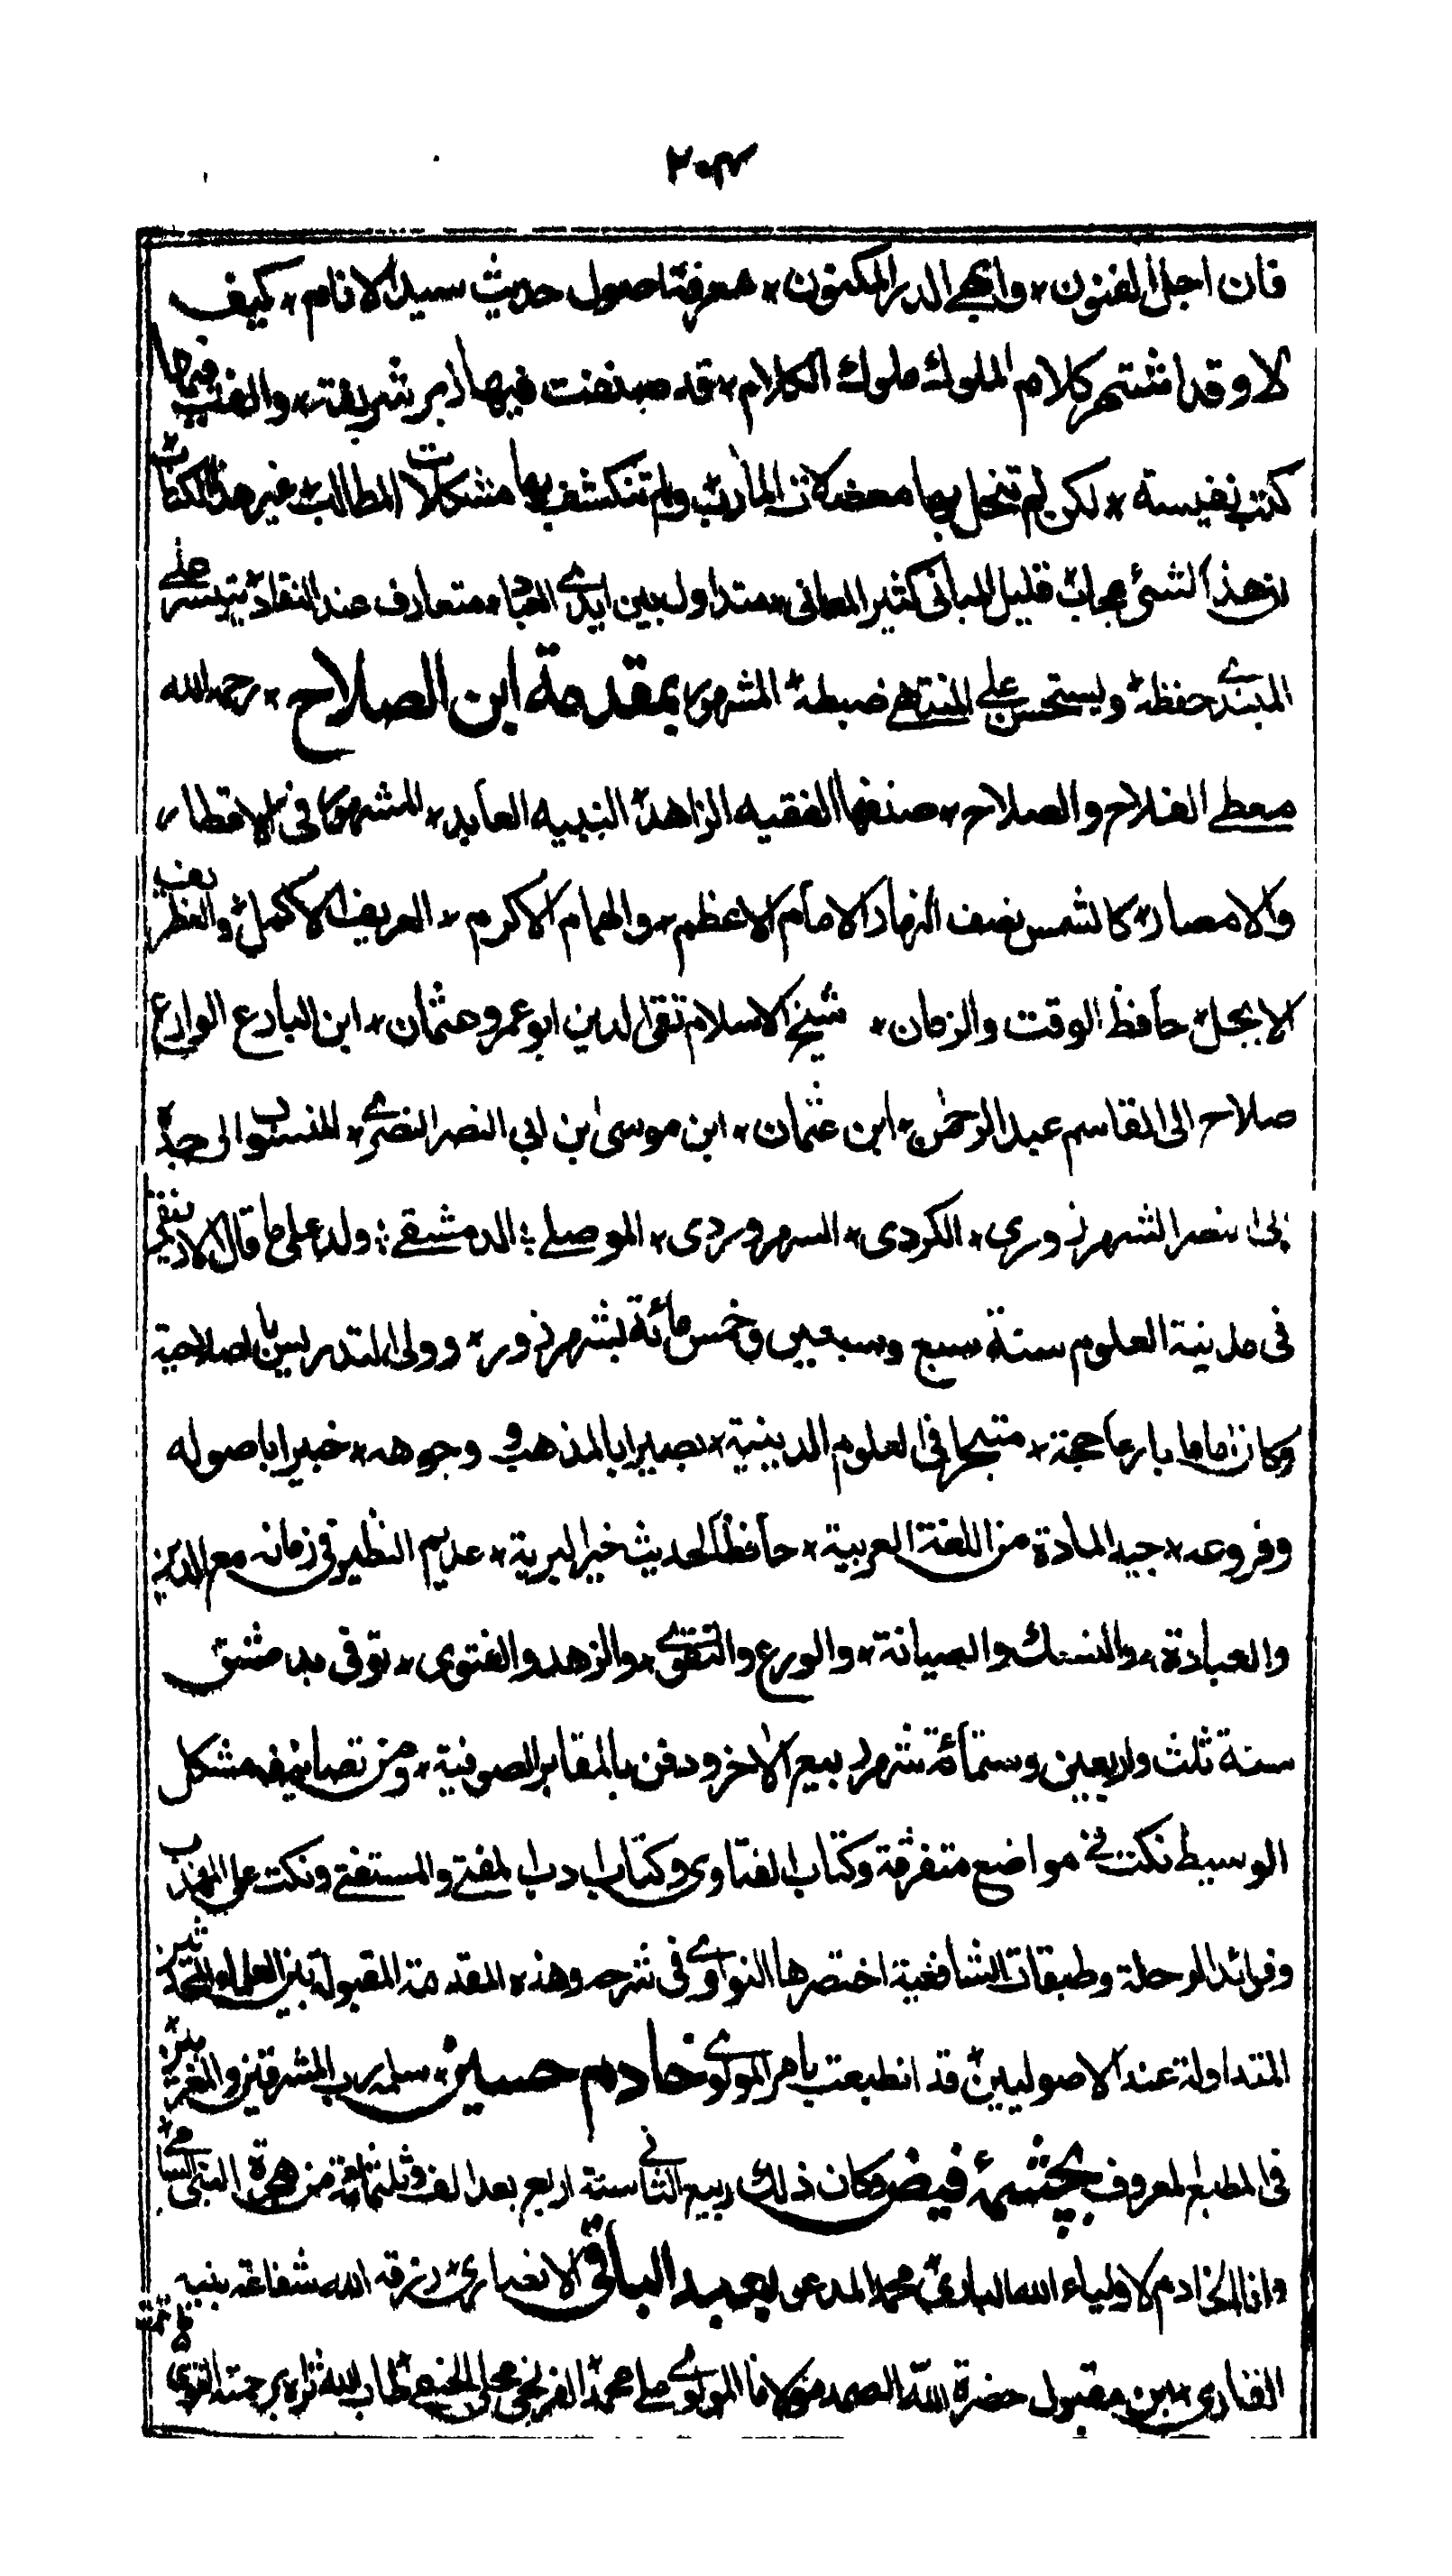 ٢٠٤
فان اجل الفنون * وابهى الدر المكنون * معرفة اصول حديث سيد الانام * كيف
لا وقد اشتهر كلام الملوك ملوك الكلام * قد صنفت فيها زبر شريفة * والفت فيها
كتب نفيسة * لكن لم تنحل بها معضلات المآرب * ولم تنكشف بها مشكلات المطالب * غير هذا الكتاب *
ان هذا لشئ عجاب * قليل المبانى كثير المعانى * متداول بين ايدى العباد * متعارف عند النقاد * يتيسر على
المبتدى حفظه * ويستحسن على المنتهى ضبطه * المشهور بمقدمة ابن الصلاح * رحمه الله
معطى الفلاح والصلاح * صنفها الفقيه الزاهد * النبيه العابد * المشهور فى الاقطار
والامصار * كالشمس نصف النهار الامام الاعظم * والهمام الاكرم * العريف الاكمل * والغطريف
الابجل * حافظ الوقت والزمان * شيخ الاسلام تقى الدين ابو عمرو عثمان * ابن البارع الوارع
صلاح الى القاسم عبد الرحمن * ابن عثمان * ابن موسى بن ابى النصر النصرى * المنسوب الى جده
ابى نصر الشهرزورى * الكردى * السهروردى * الموصلى * الدمشقى * ولد على ما قال الازنيقى
فى مدينة العلوم سنة سبع وسبعين وخمس مائة بشهرزور * وولى التدريس بالصلاحية
وكان اماما بارعا حجة * متبحرا فى العلوم الدينية * بصيرا بالمذهب و وجوهه * خبيرا باصوله
وفروعه * جيد المادة من اللغة العربية * حافظا لحديث خير البرية * عديم النظير فى زمانه مع الدين
والعبادة * والنسك والصيانة * والورع والتقوى * والزهد والفتوى * توفى بدمشق
سنة ثلث واربعين وستمائة شهر ربيع الآخر ودفن بالمقابر الصوفية * ومن تصانيفه مشكل
الوسيط نكت فى مواضع متفرقة وكتاب الفتاوى وكتاب ادب المفتى والمستفتى ونكت على المهذب
وفرائد الرحلة وطبقات الشافعية اختصرها النواوى فى شرحه وهذه المقدمة المقبولة بين العلماء والمحدثين
المتداولة عند الاصوليين * قد انطبعت بامر المولوى خادم حسين * سلمه رب المشرقين والمغربين *
فى المطبع المعروف بچشمۂ فيض وكان ذلك ربيع الثانى سنة اربع بعد الف وثلثمائة من هجرة النبى السامى *
وانا الخادم لاولياء الله البارى * محمد المدعو بعبد الباقى الانصارى * رزقه الله شفاعة نبيه
القارى * ابن مقبول حضرة الله الصمد مولانا المولوى على محمد * الفرنجى محلى الحنفى * طاب الله ثراه برحمته القوى
تمت